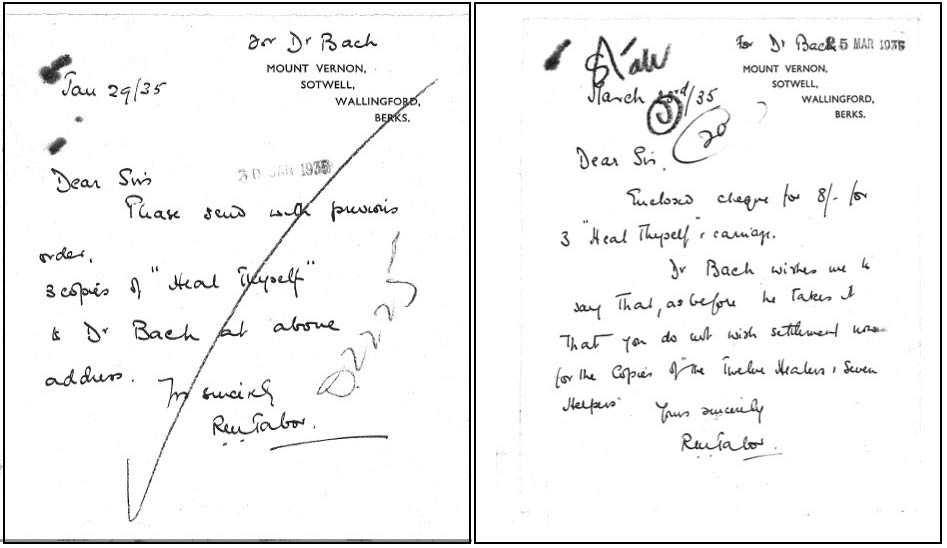 for Dr Bach
MOUNT VERNON,
SOTWELL,
WALLINGFORD,
BERKS.
Jan 29/35
30 JAN 1935
Dear Sirs
Please send with previous
order,
3 copies of "Heal Thyself"
to Dr Bach at above
address.
Yrs sincerely
Tabor.
For Dr Bach
5 MAR 1935
MOUNT VERNON,
SOTWELL,
WALLINGFORD,
BERKS.
March /35
20
Dear Sir,
Enclosed cheque for 8/- for
3 "Heal Thyself" & carriage.
Dr Bach wishes me to
say that, as before he takes it
that you do not wish settlement now
for the Copies of "the Twelve Healers & Seven
Helpers"
Yours sincerely
Tabor.